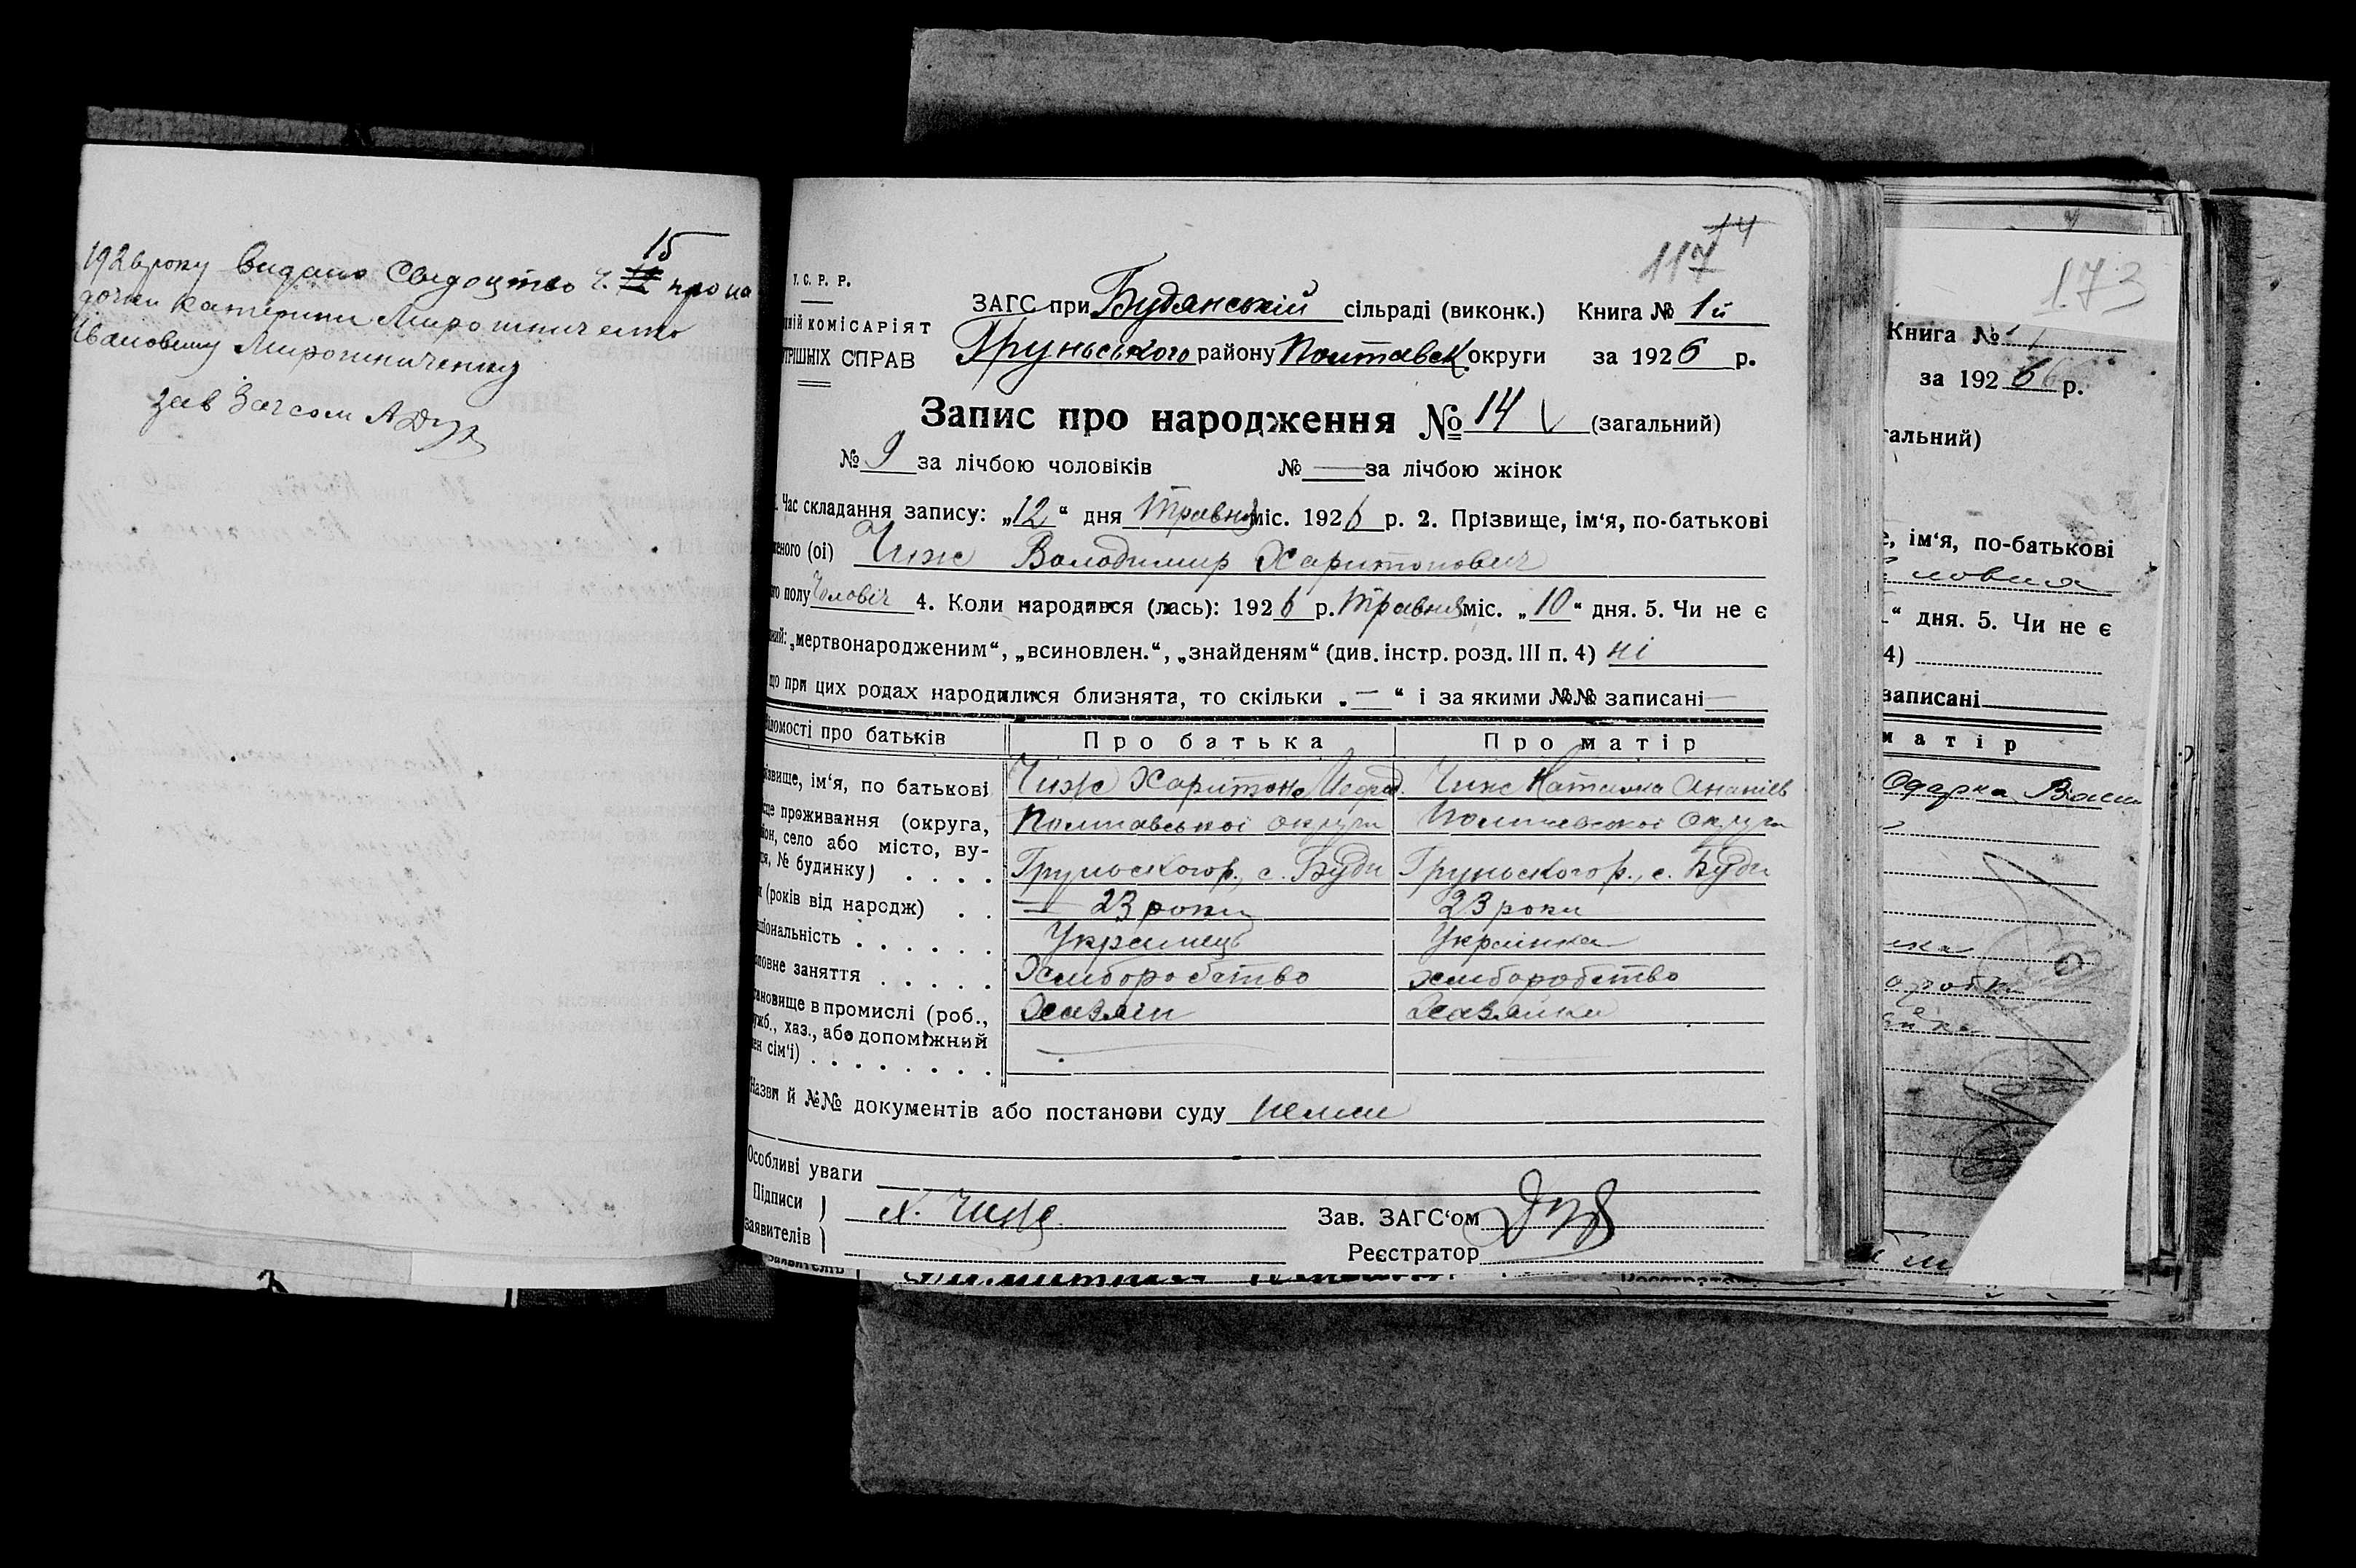 15
1926 року видано Свидоцтво Ч. 12 про на
дочки Катерини Мирошниченко
Ивановичу Мирошниченку
Зав Загсом
14
117
У. С. Р. Р.
ЗАГС при Будянській сільраді (виконк.) Книга № 1й
КОМІСАРІЯТ
СПРАВ Груньського району Полтавськ округи за 1926 р.
Запис про народження № 14 (загальний)
№ 9 за лічбою чоловіків № — за лічбою жінок
Час складання запису: „12“ дня Травня міс. 1926 р. 2. Прізвище, ім‘я, по-батькові
(ої) Чиж Володимир Харитонович
полу Чоловіч 4. Коли народився (лась): 1926 р. Травня міс. „10“ дня. 5. Чи не є
„мертвонародженим“, „всиновлен.“, „знайденям“ (див. інстр. розд. III п. 4) ні
що при цих родах народилися близнята, то скільки „—“ і за якими №№ записані —
про батьків Про батька Про матір
ім‘я, по батькові Чиж Харитон Чиж Наталка Ананіїв
проживання (округа, Полтавської округи Полтавської округи
село або місто, ву-
№ будинку) . . . . Груньского р., с. Буди Груньского р., с. Буди
(років від народж) . . 23 роки 23 роки
. . . . . . Українець Українка
заняття . . . . . Хлиборобство хлиборобство
в промислі (роб., Хазяїн Хазяйка
хаз., або допоміжний
сім‘ї) . . . . . . . .
Назви й №№ документів або постанови суду немає
Особливі уваги
Підписи
заявителів Х. Чиж
Зав. ЗАГС‘ом
Реєстратор
173
Книга № 1
за 1926 р.
ім‘я, по-батькові
“ дня. 5. Чи не є
4)
записані
матір
Одарка